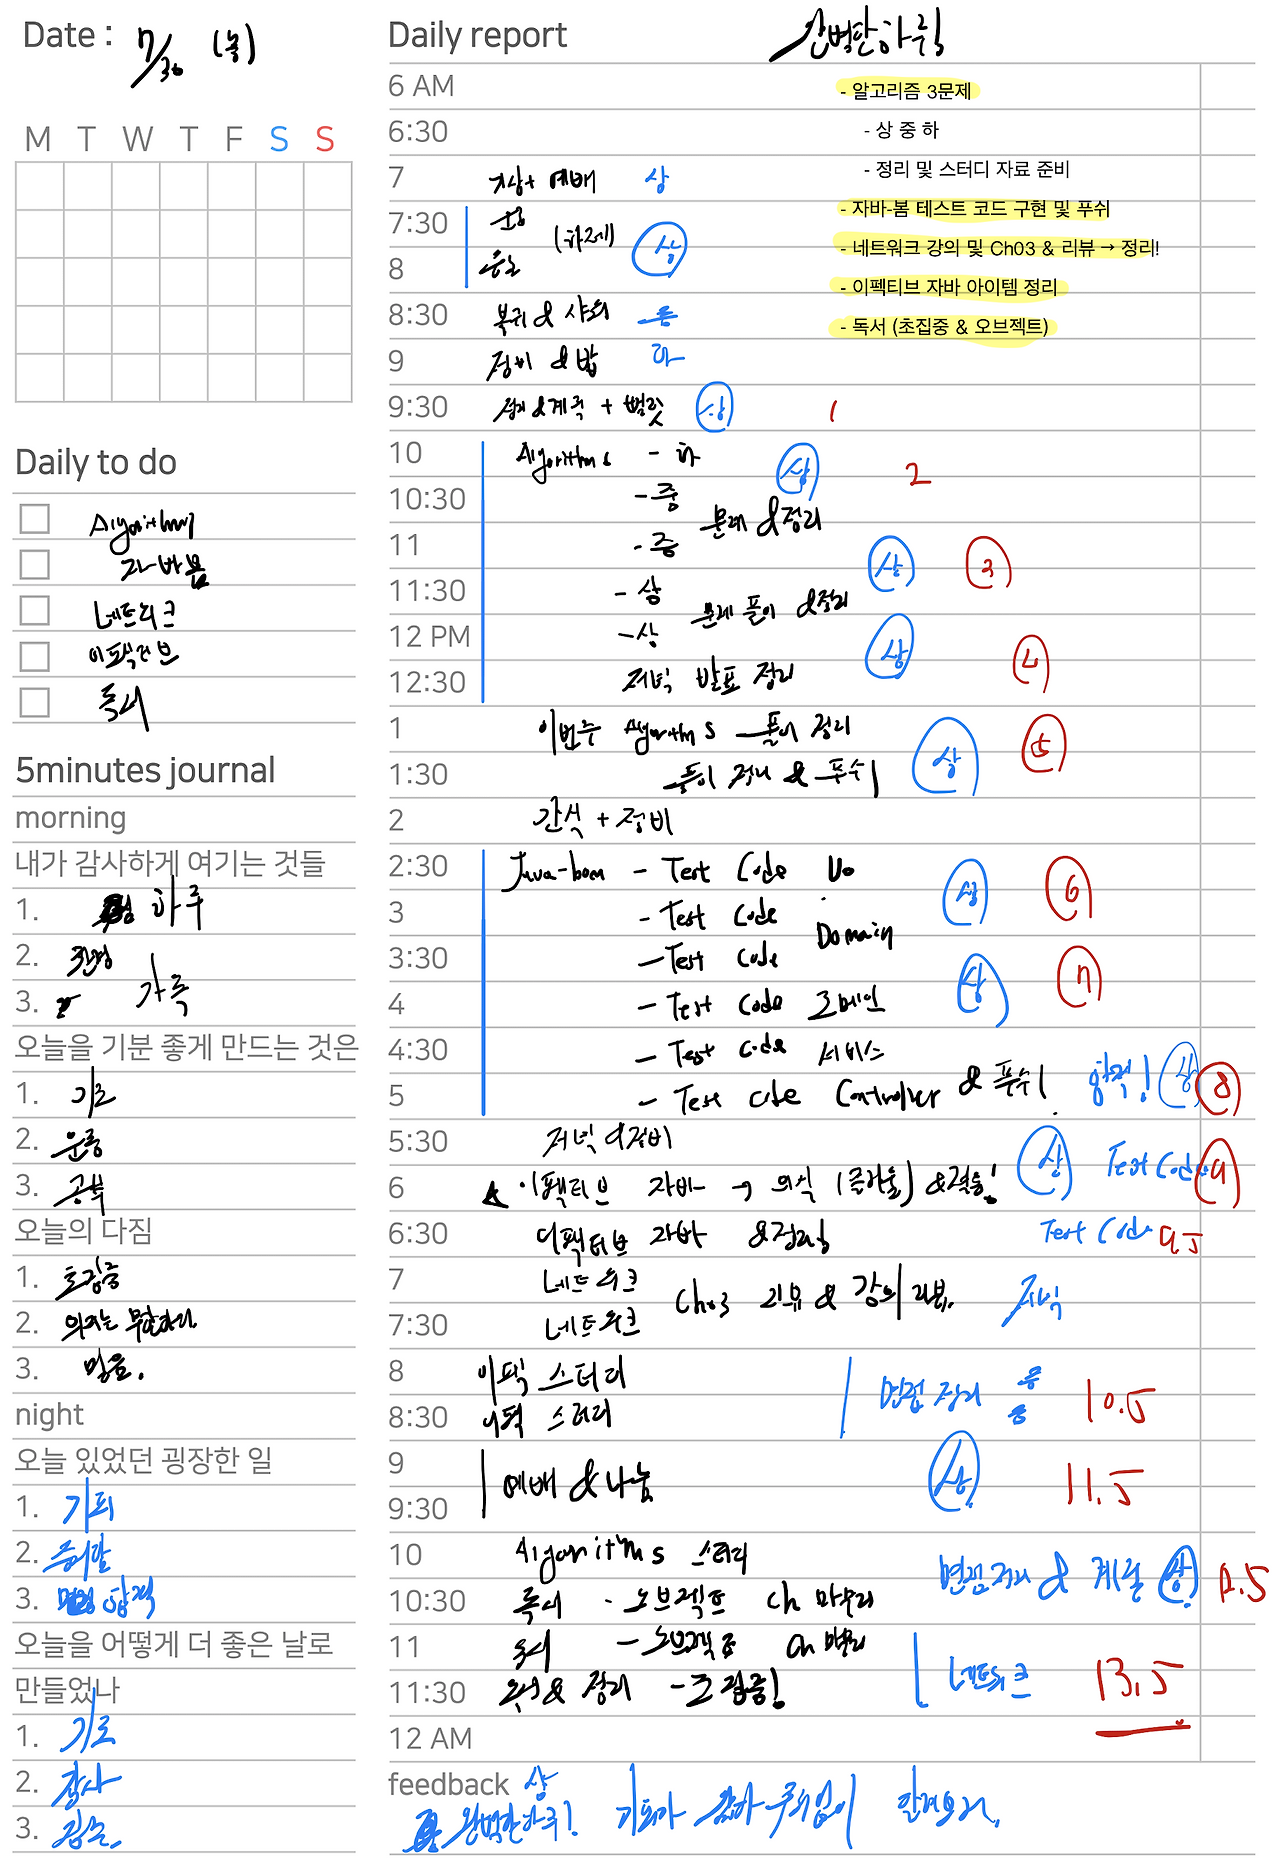 Date : 7/30 (농)
M T W T F S S
Daily to do
Algorithm
자바봄
네트워크
이펙티브
독서
5minutes journal
morning
내가 감사하게 여기는 것들
1. 하루
2.
가족
3.
오늘을 기분 좋게 만드는 것은
1. 기도
2. 운동
3. 공부
오늘의 다짐
1. 초집중
2.
3. 믿음.
night
오늘 있었던 굉장한 일
1. 기도
2.
3.
오늘을 어떻게 더 좋은 날로
만들었나
1. 기도
2. 감사
3. 집중.
Daily report
완벽한하루
- 알고리즘 3문제
- 상 중 하
- 정리 및 스터디 자료 준비
- 자바-봄 테스트 코드 구현 및 푸쉬
- 네트워크 강의 및 Ch03 & 리뷰 → 정리!
- 이펙티브 자바 아이템 정리
- 독서 (초집중 & 오브젝트)
6 AM
6:30
7 기상+ 예배 상
7:30
8 상
8:30 복귀 & 샤워 중
9 정비 & 밥 하
9:30 정리&계획 + 상 1
10 Algorithms - 하 상 2
10:30 - 중
문제 &정리
11 - 중 상 3
11:30 - 상
문제 풀이 &정리
12 PM - 상 상 4
12:30 저녁 발표 정리
1 이번주 Algorithms 풀이 정리 상 5
1:30 풀이 정리 & 푸쉬!
2 간식 + 정비
2:30 Java-bom - Test Code Vo 상 6
3 - Test Code
Domain
3:30 - Test Code 상 7
4 - Test Code 도메인
4:30 - Test Code 서비스
5 - Test Code Controller & 푸쉬! 상 8
5:30 저녁 &정비
6 이펙티브 자바 → 의식 (클라쓸) & 상 Test Code 9
6:30 이펙티브 자바 &정리 Test Code 9.5
7 네트워크
Ch03 리뷰 & 강의 리뷰. 저녁
7:30 네트워크
8 이펙 스터디
면접 정리 중 중 10.5
8:30 이펙 스터디
9
예배 & 나눔 상 11.5
9:30
10 Algorithms 스터디
면접정리 & 계획 상 12.5
10:30 독서 - 오브젝트 Ch 마무리
11 독서 - 오브젝트 Ch 마무리
네트워크 13.5
11:30 & 정리 - 초집중!
12 AM
feedback 상
완벽한하루! 기도와 감사 달려오라.